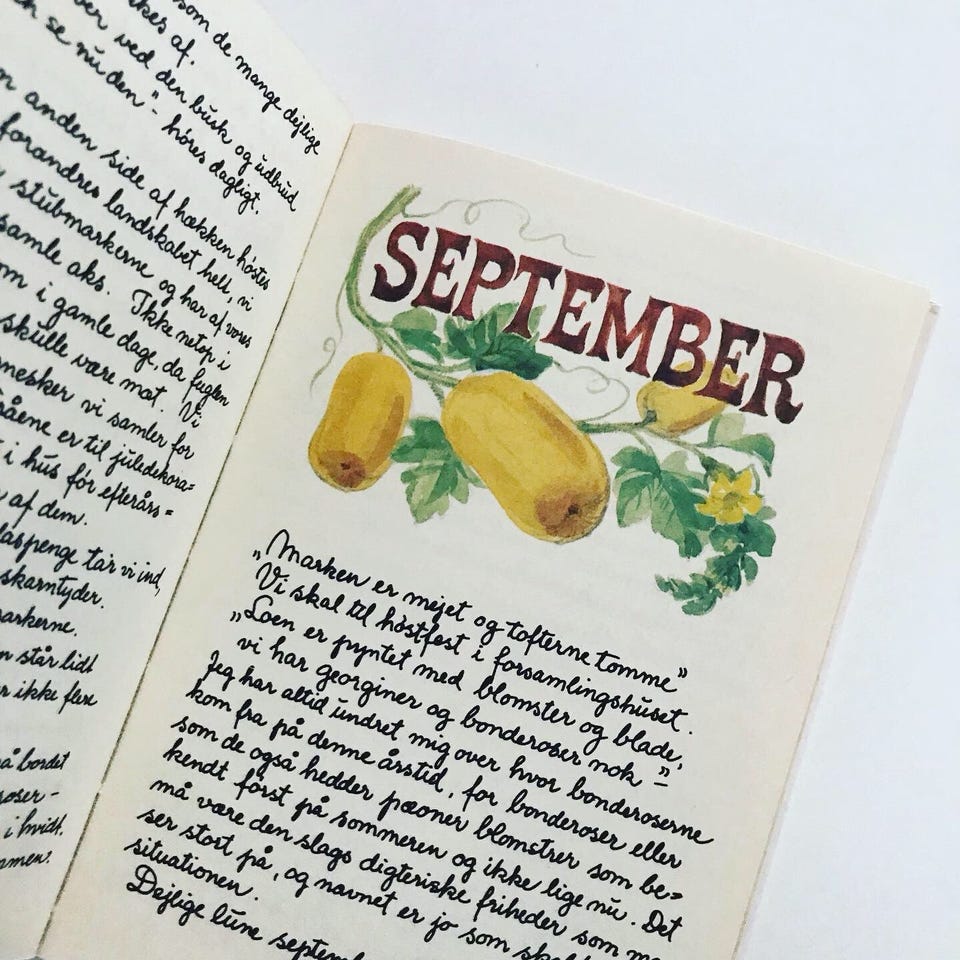 som de mange dejlige
kes af.
ver ved den busk og udbud
se nu den" - høres dagligt.
anden side af hækken høstes
forandres landskabet helt, vi
stubmarkerne og har af vores
samle aks. Ikke netop i
om i gamle dage, da fuglen
skulle være mæt. Vi
nesker vi samler for
råene er til juledekora=
i hus før efterårs=
af dem.
låspenge tar vi ind,
skarntyder.
markerne.
n står lidt
er ikke flere
på bordet
roser -
i hvidt.
mmen.
SEPTEMBER
„Marken er mejet og tofterne tomme"
Vi skal til høstfest i forsamlingshuset.
„Loen er pyntet med blomster og blade,
vi har georginer og bonderoser nok" -
Jeg har altid undret mig over hvor bonderoserne
kom fra på denne årstid, for bonderoser eller
som de også hedder pæoner blomstrer som be=
kendt først på sommeren og ikke lige nu. Det
må være den slags digteriske friheder som man
ser stort på, og navnet er jo som skabt
situationen.
Dejlige lune septemb